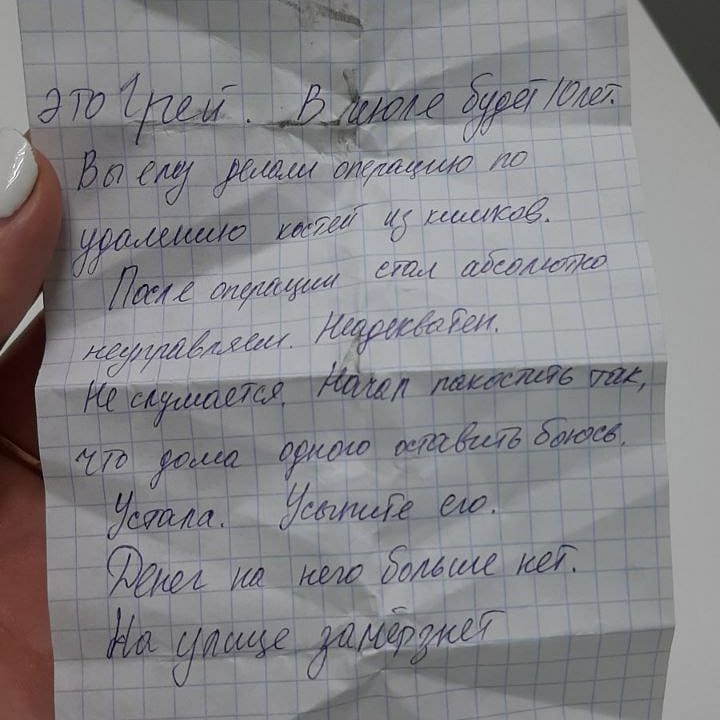 Это Грей. В июле будет 10 лет.
Вы ему делали операцию по
удалению костей из кишков.
После операции стал абсолютно
неуправляем. Неадекватен.
Не слушается. Начал пакостить так,
что дома одного оставить боюсь.
Устала. Усыпите его.
Денег на него больше нет.
На улице замёрзнет